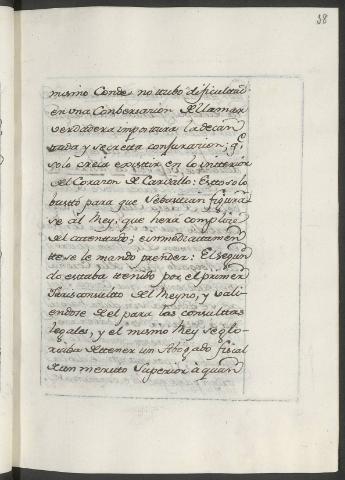 38
mismo Conde no tubo dificultad
en una Conbersacion de llamar
verdadera impostura la decan
tada y secreta conjuracion; q.e
solo creia existir en lo interior
del Corazon de Carvallo: Esto solo
bastó para que Sebastian figura
se al Rey, que hera complice
del atentado; e inmediatamen
tte se le mando prender: El segun
do estaba ttenido por el primer
Jurisconsulto del Reyno, y vali
endose de el para las consultas
legales, y el mismo Rey se glo
riaba de ttener un Abogado fiscal
de un merito Superior à quan